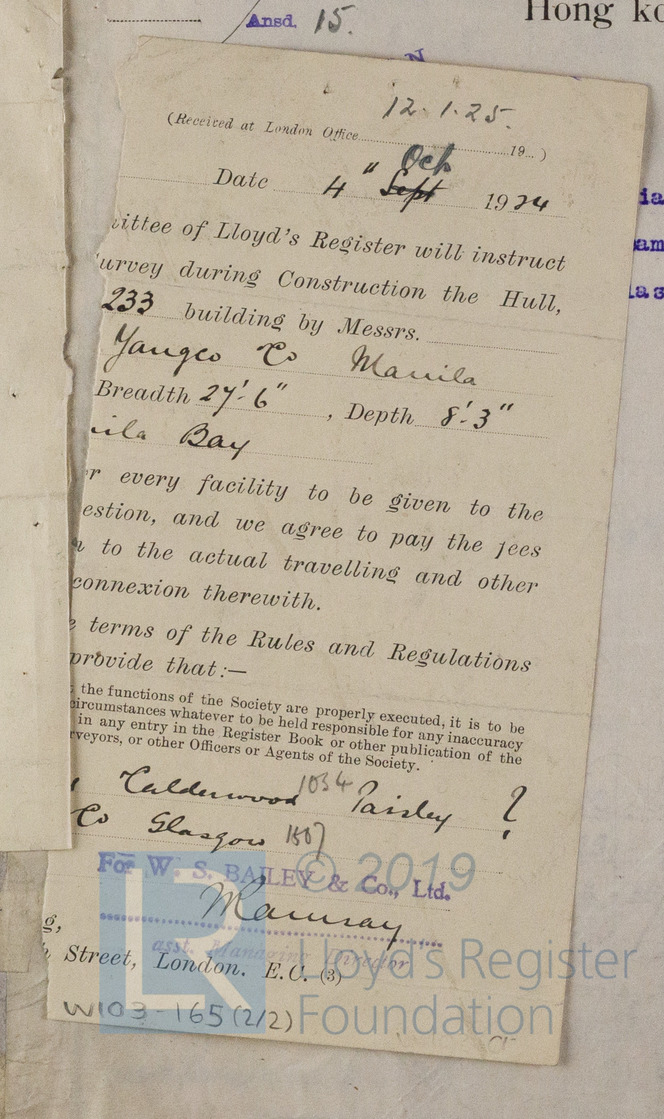 Ansd. 15.
Hong ko
12.1.25.
(Received at London Office 19 )
Oct
Date 4" Sept 1924
ittee of Lloyd's Register will instruct
urvey during Construction the Hull,
233 building by Messrs.
Yangco Co Manila
Breadth 27'-6", Depth 8'-3"
ila Bay
r every facility to be given to the
estion, and we agree to pay the fees
n to the actual travelling and other
connexion therewith.
e terms of the Rules and Regulations
provide that:—
the functions of the Society are properly executed, it is to be
circumstances whatever to be held responsible for any inaccuracy
in any entry in the Register Book or other publication of the
rveyors, or other Officers or Agents of the Society.
Calderwood 1034 Paisley ?
Co Glasgow 1507
For W. S. BAILEY & Co., Ltd.
© 2019
Ramsay
asst. Managing Director
g,
Street, London. E.C. (3)
LR
Lloyd's Register
Foundation
W103-165(2/2)